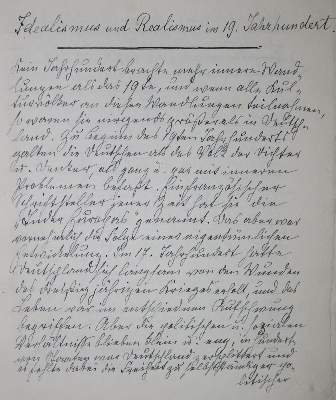 Idealismus und Realismus im 19. Jahrhundert.
Kein Jahrhundert brachte mehr innere Wand-
lungen als das 19te, und wenn alle Kul-
turvölker an diesen Wandlungen teilnahmen,
so waren sie nirgends größer als in Deutsch-
land. Zu Beginn des 19ten Jahrhunderts
galten die Deutschen als das Volk der Dichter
u. Denker, als ganz u. gar mit inneren
Problemen befaßt. Ein französischer
Schriftsteller jener Zeit hat sie die
"Inder Europas" genannt. Das aber war
vornehmlich die Folge eines eigentümlichen
Entwicklung. Im 17. Jahrhundert hatte
Deutschland sich langsam von den Wunden
des dreißigjährigen Krieges erholt, und das
Leben war im entschiedenen Aufschwung
begriffen. Aber die politischen u. sozialen
Verhältnisse blieben klein u. eng, in hundert
von Staaten war Deutschland zersplittert und
es fehlte dabei die Freiheit zu selbstständiger po-
litischer